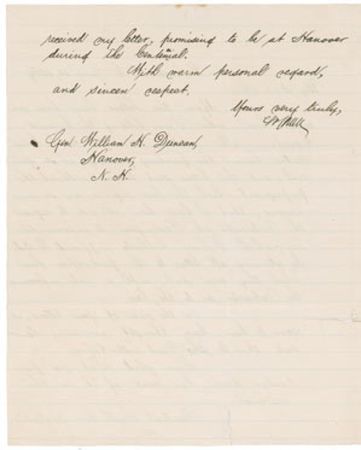 received my letter, promising to be at Hanover
during the Centennial.
With warm personal regard,
and sincere respect.
Yours very truly,
Gen. William H. Duncan,
Hanover,
N. H.